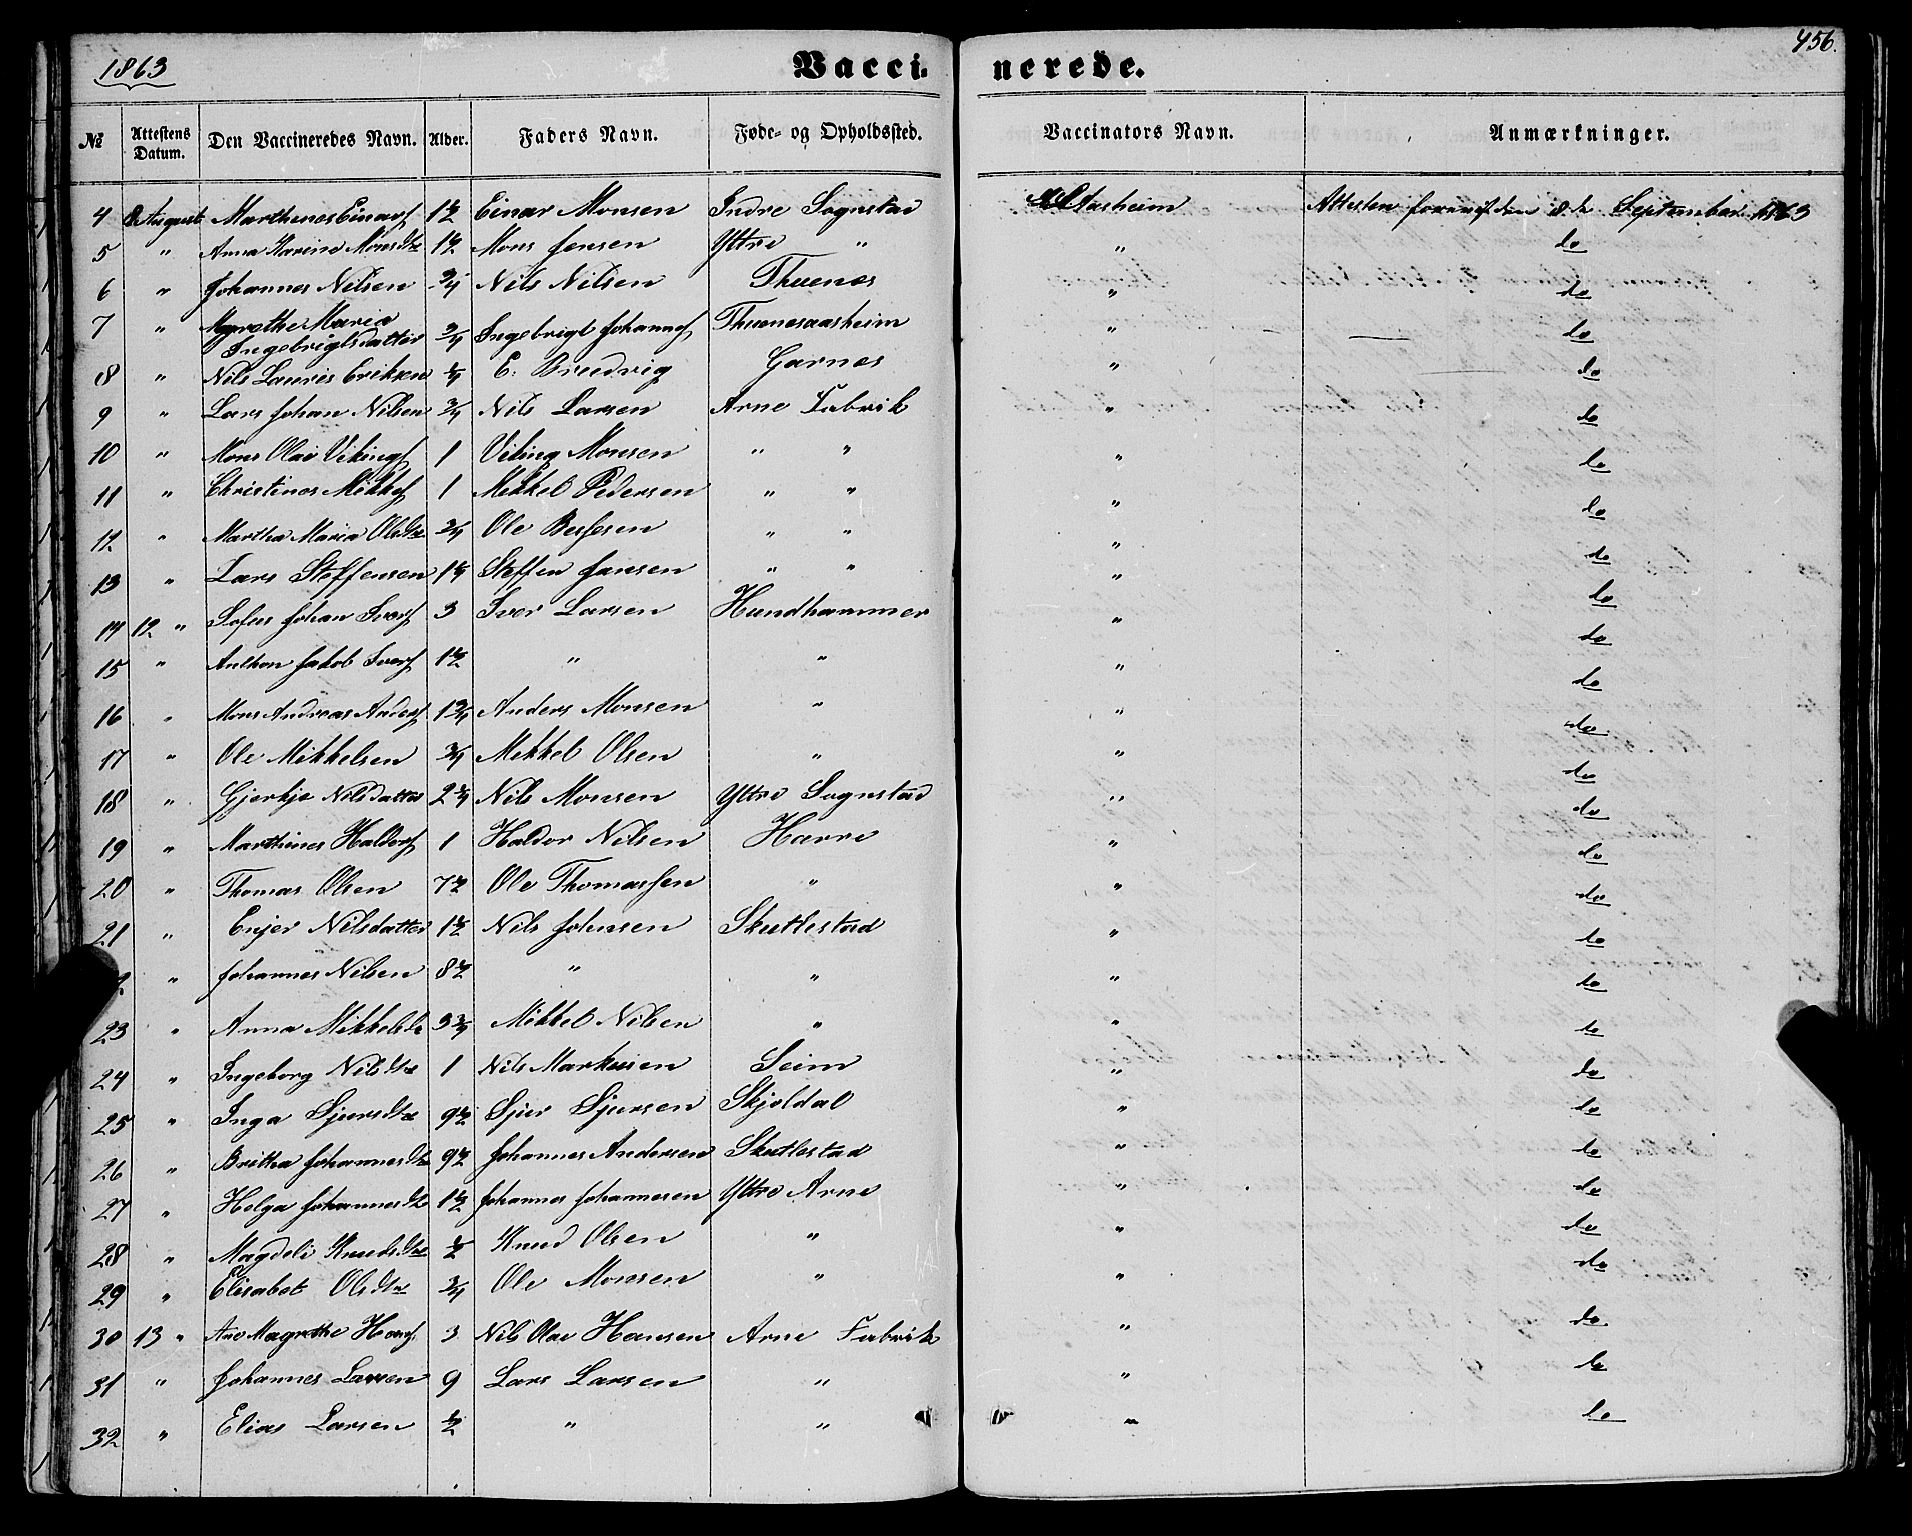 1863 Vaccinerede. 456.
№ Attestens Datum. Den Vaccineredes Navn. Alder. Faders Navn. Føde- og Opholdssted. Vaccinators Navn. Anmærkninger.
4 8 August Marthenes Einarſ 1½ Einar Monsen Indre Sognstad Aasheim Attesten fornyet den 18de September 1863
5 " Anna Karine Monsdtr 1½ Mons Jensen Ytre " " do
6 " Johannes Nilsen ¾ Nils Nilsen Thuenes " do
7 " Magrethe Maria
Ingebrigtsdatter ¾ Ingebrigt Johannesſ Thuenesaasheim " do
8 " Nils Lauris Eriksen ¼ E. Brudvig Garnes " do
9 " Lars Johan Nilsen ¾ Nils Larsen Arne Fabrik " do
10 " Mons Olai Vikingſ 1 Viking Monsen " " " do
11 " Christines Mikkelſ 1 Mikkel Pedersen " " " do
12 " Martha Maria Olsdtr ¾ Ole Bessesen " " " do
13 " Lars Steffensen 1¼ Steffen Jansen " " " do
14 12 " Sofus Johan Iverſ 3 Iver Larsen Hundhammer " do
15 " Anthon Jakob Iverſ 1½ " " " do
16 " Mons Andreas Andersſ 1¾ Anders Monsen " " do
17 " Ole Mikkelsen ¾ Mikkel Olsen " " do
18 " Gjertje Nilsdatter 2¼ Nils Monsen Ytre Sognstad " do
19 " Marthines Haldorſ 1 Haldor Nilsen Haere " do
20 " Thomas Olsen 7½ Ole Thomassen " " do
21 " Enjer Nilsdatter 1½ Nils Johnsen Skutlestad " do
" Johannes Nilsen 8½ " " " do
23 " Anna Mikkelsdtr 3¾ Mikkel Nilsen " " do
24 " Ingeborg Nilsdtr 1 Nils Markusen Seim " do
25 " Inga Sjursdtr 9½ Sjur Sjursen Skjoldal " do
26 " Britha Johannesdtr 9½ Johannes Andersen Skutlestad " do
27 " Helga Johannesdtr 1½ Johannes Johannesen Ytre Arne " do
28 " Magdeli Knudsdtr ½ Knud Olsen " " do
29 " Elisabet Olsdtr ¾ Ole Monsen " " do
30 13 " Ane Magrethe Hansſ 3 Nils Olai Hansen Arne Fabrik " do
31 " Johannes Larsen 9 Lars Larsen " " do
32 " Elias Larsen ½ " " " do